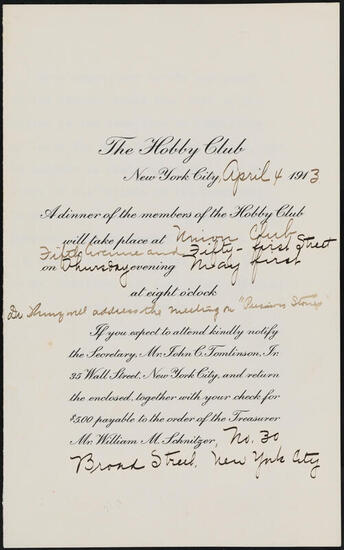 The Hobby Club
New York City, April 4 1913
A dinner of the members of the Hobby Club
will take place at Union Club
Fifth Avenue and Fifty-first Street
on Thursday evening May first
at eight o'clock
Dr. will address the meeting on "Precious Stones"
If you expect to attend kindly notify
the Secretary, Mr. John C. Tomlinson, Jr.
35 Wall Street, New York City, and return
the enclosed, together with your check for
$5.00 payable to the order of the Treasurer
Mr. William M. Schnitzer, No. 30
Broad Street, New York City